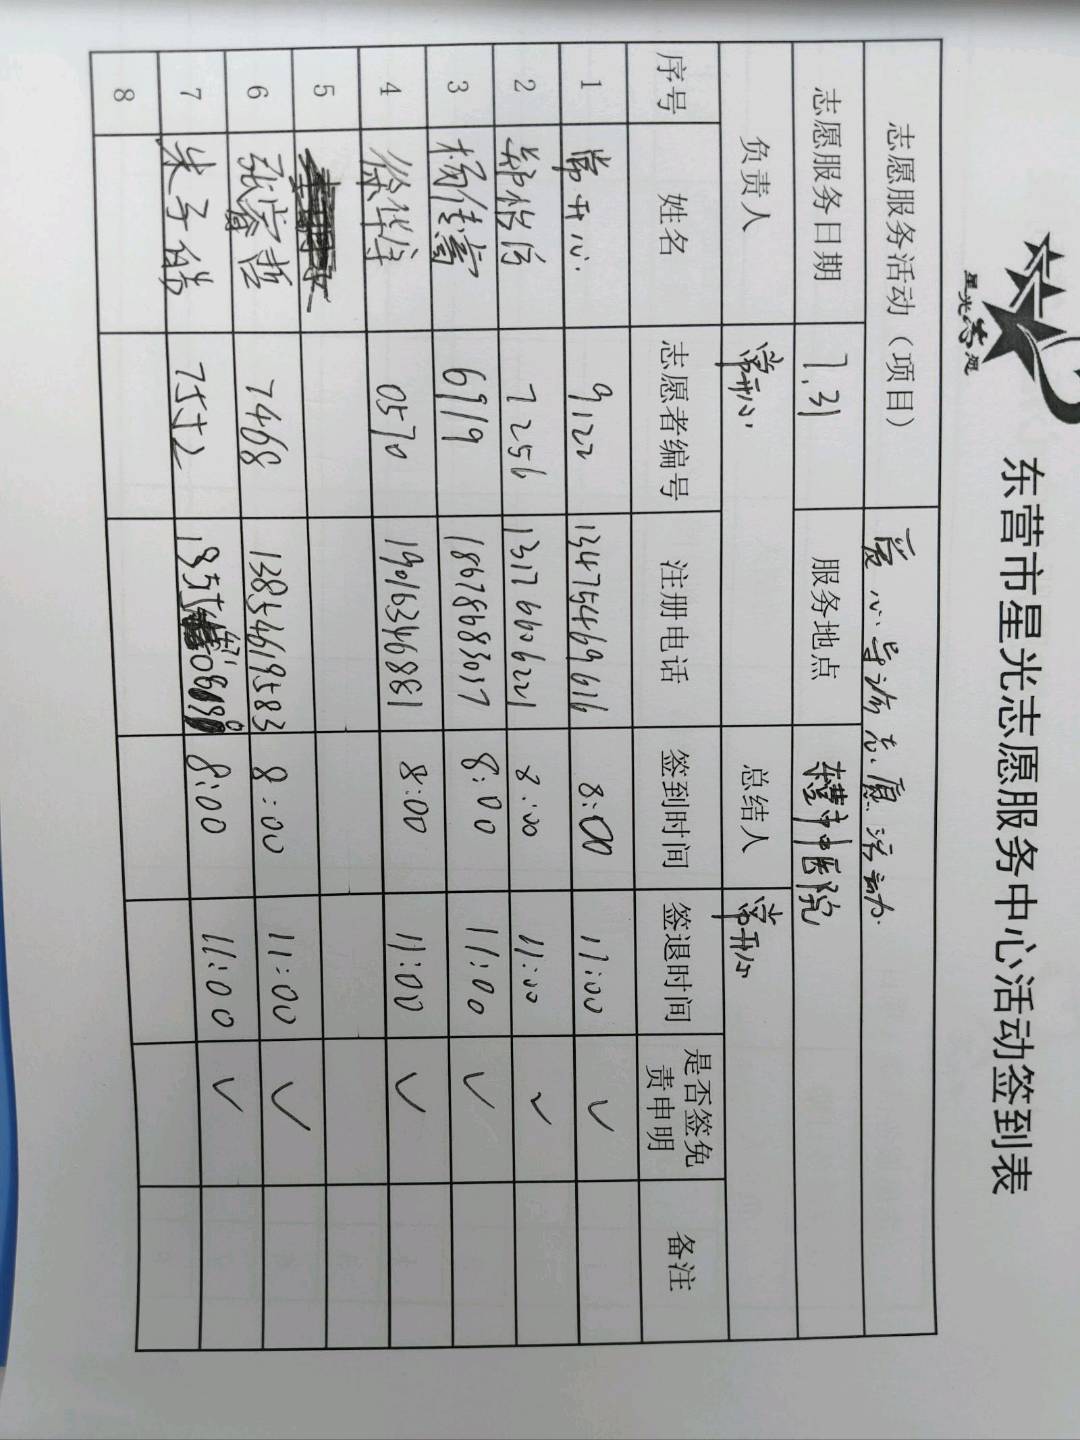 星光志愿
东营市星光志愿服务中心活动签到表
志愿服务活动（项目） 爱心导诊志愿活动
志愿服务日期 7.31 服务地点 中医院
负责人 常开心 总结人 常开心
序号 姓名 志愿者编号 注册电话 签到时间 签退时间 是否签免责申明 备注
1 常开心 9122 13475469616 8:00 11:00 ✓
2 郑怡 7256 13176606221 8:00 11:00 ✓
3 杨佳 6919 18678683017 8:00 11:00 ✓
4 徐华 0570 19016346881 8:00 11:00 ✓
5
6 张 哲 7468 13854619583 8:00 11:00 ✓
7 朱子皓 7552 8:00 11:00 ✓
8